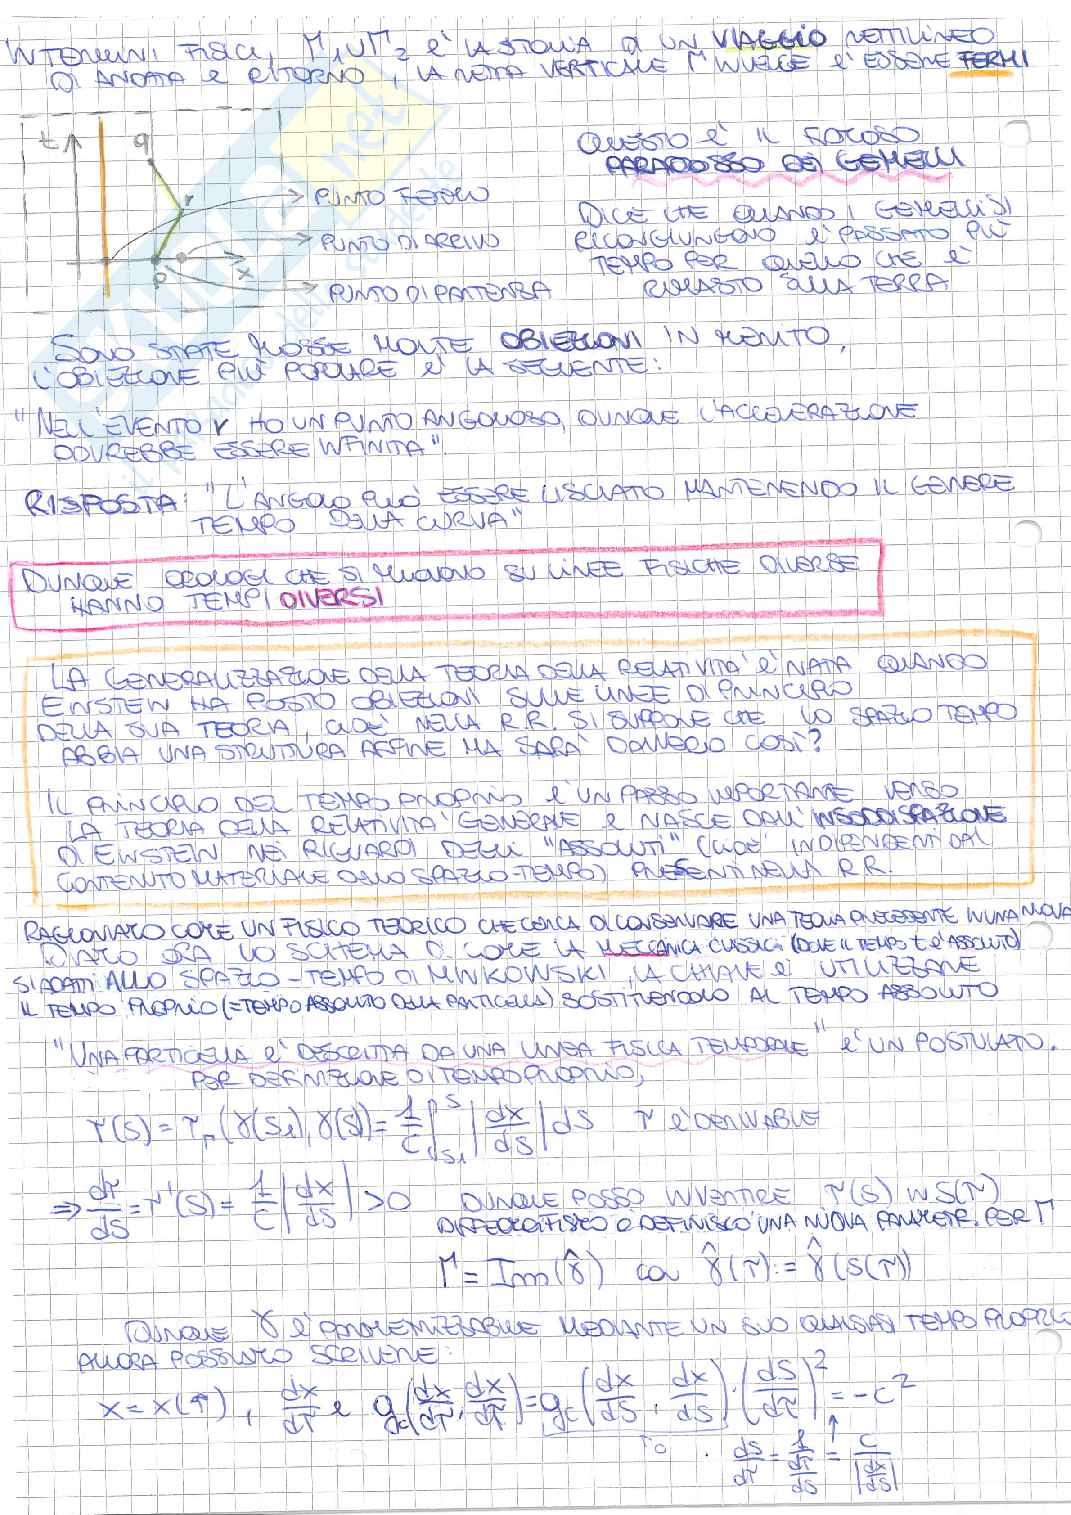 IN TERMINI FISICI, Γ₁∪Γ₂ è LA STORIA DI UN VIAGGIO RETTILINEO
DI ANDATA E RITORNO, LA RETTA VERTICALE Γ INVECE è ESSERE FERMI
t
q
r
p
x
PUNTO FERMO
PUNTO DI ARRIVO
PUNTO DI PARTENZA
QUESTO è IL FAMOSO
PARADOSSO DEI GEMELLI
DICE CHE QUANDO I GEMELLI SI
RICONGIUNGONO è PASSATO PIÙ
TEMPO PER QUELLO CHE è
RIMASTO SULLA TERRA
SONO STATE MOSSE MOLTE OBIEZIONI IN MERITO,
L'OBIEZIONE PIÙ POPOLARE è LA SEGUENTE:
"NELL'EVENTO r HO UN PUNTO ANGOLOSO, DUNQUE L'ACCELERAZIONE
DOVREBBE ESSERE INFINITA".
RISPOSTA: "L'ANGOLO PUÒ ESSERE LISCIATO MANTENENDO IL GENERE
TEMPO DELLA CURVA"
DUNQUE OROLOGI CHE SI MUOVONO SU LINEE FISICHE DIVERSE
HANNO TEMPI DIVERSI
LA GENERALIZZAZIONE DELLA TEORIA DELLA RELATIVITÀ è NATA QUANDO
EINSTEIN HA POSTO OBIEZIONI SULLE LINEE DI PRINCIPIO
DELLA SUA TEORIA, CIOÈ NELLA R.R. SI SUPPONE CHE LO SPAZIO TEMPO
ABBIA UNA STRUTTURA AFFINE MA SARÀ DAVVERO COSÌ?
IL PRINCIPIO DEL TEMPO PROPRIO è UN PASSO IMPORTANTE VERSO
LA TEORIA DELLA RELATIVITÀ GENERALE E NASCE DALL'INSODDISFAZIONE
DI EINSTEIN NEI RIGUARDI DEGLI "ASSOLUTI" (CIOÈ INDIPENDENTI DAL
CONTENUTO MATERIALE DELLO SPAZIO-TEMPO) PRESENTI NELLA R.R.
RAGIONIAMO COME UN FISICO TEORICO CHE CERCA DI CONSERVARE UNA TEORIA PRECEDENTE IN UNA NUOVA
DIAMO ORA UNO SCHEMA DI COME LA MECCANICA CLASSICA (DOVE IL TEMPO t è ASSOLUTO)
SI ADATTI ALLO SPAZIO-TEMPO DI MINKOWSKI, LA CHIAVE è UTILIZZARE
IL TEMPO PROPRIO (=TEMPO ASSOLUTO DELLA PARTICELLA) SOSTITUENDOLO AL TEMPO ASSOLUTO
"UNA PARTICELLA è DESCRITTA DA UNA LINEA FISICA TEMPORALE" è UN POSTULATO.
PER DEFINIZIONE DI TEMPO PROPRIO,
τ(s) = τ_Γ(γ(s₁), γ(s)) = 1/c ∫_{s₁}^{s} |dx/ds| ds τ è DERIVABILE
⇒ dτ/ds = τ'(s) = 1/c |dx/ds| > 0 DUNQUE POSSO INVERTIRE τ(s) IN s(τ)
DIFFEOMORFISMO E DEFINISCO UNA NUOVA PARAMETR. PER Γ
Γ = Im(γ̂) con γ̂(τ) := γ̂(s(τ))
DUNQUE γ è PARAMETRIZZABILE MEDIANTE UN SUO QUALSIASI TEMPO PROPRIO
ALLORA POSSIAMO SCRIVERE:
x = x(τ), dx/dτ e g_c(dx/dτ, dx/dτ) = g_c(dx/ds, dx/ds)·(ds/dτ)² = -c²
ds/dτ = 1/(dτ/ds) = c/|dx/ds|